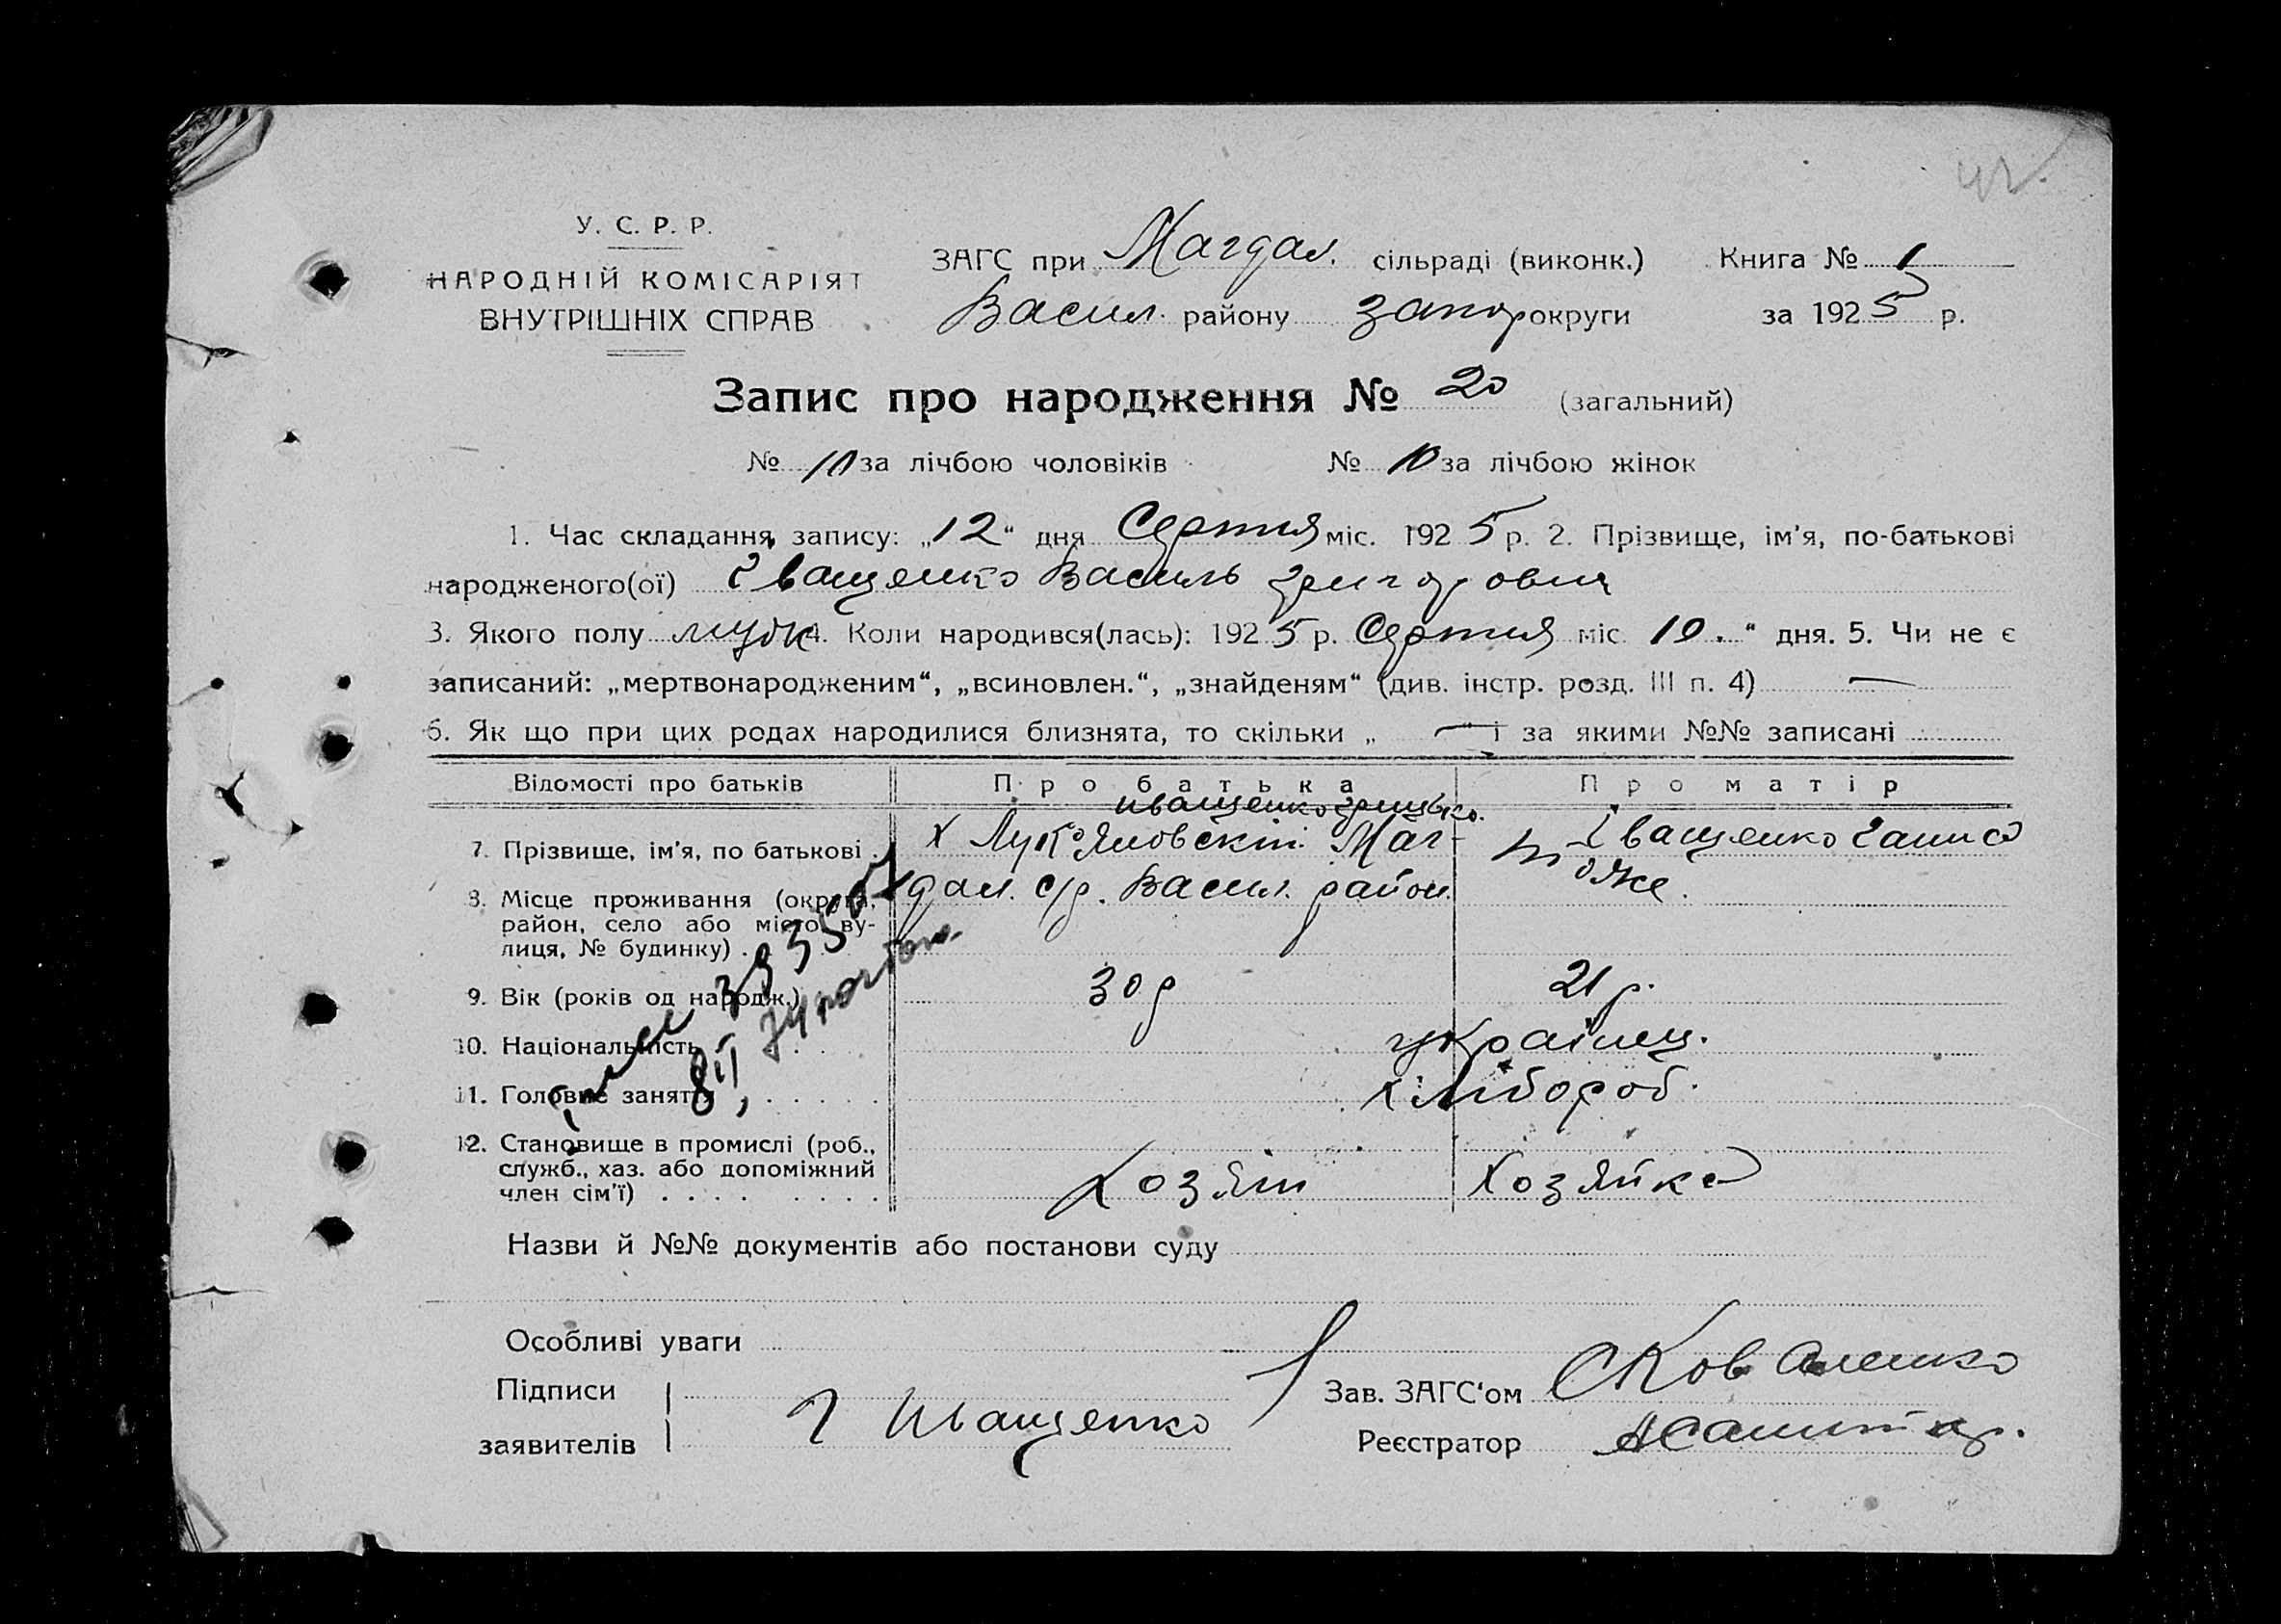 У. С. Р. Р.
НАРОДНІЙ КОМІСАРІЯТ
ВНУТРІШНІХ СПРАВ
ЗАГС при Магдал. сільраді (виконк.) Книга № 1
Васил. району Запор округи за 1925 р.
Запис про народження № 20 (загальний)
№ 10 за лічбою чоловіків № 10 за лічбою жінок
1. Час складання запису: „12“ дня Серпня міс. 1925 р. 2. Прізвище, ім'я, по-батькові
народженого(ої) Іващенко Василь Григорович
3. Якого полу муж 4. Коли народився(лась): 1925 р. Серпня міс 10.“ дня. 5. Чи не є
записаний: „мертвонародженим“, „всиновлен.“, „знайденям“ (див. інстр. розд. III п. 4) —
6. Як що при цих родах народилися близнята, то скільки „ —“ і за якими №№ записані
Відомості про батьків Про батька Про матір
Иващенко Грицько.
7. Прізвище, ім'я, по батькові . х. Лук'яновскій Маг- Іващенко Ганна
8. Місце проживання (округа, дал. с/р. Васил. район. тоже.
район, село або місто, ву-
лиця, № будинку) .
9. Вік (років од народж.) 30 р 21 р.
10. Національність украінц.
11. Головне заняття хлібороб.
12. Становище в промислі (роб.,
служб., хаз. або допоміжний
член сім'ї) . . . . Хозяін Хозяйка
Назви й №№ документів або постанови суду
Особливі уваги
Підписи Зав. ЗАГС'ом СКоваленко
заявителів Г Иващенко Реєстратор